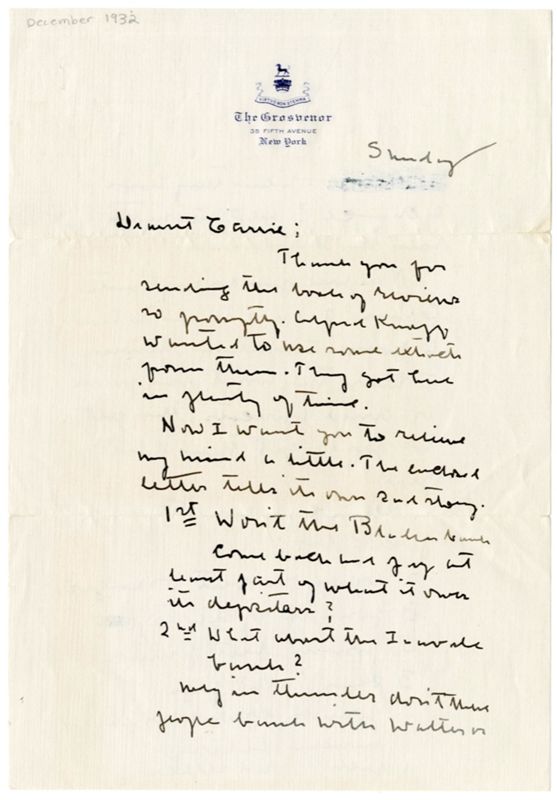 December 1932
VIRTUS NON STEMMA
The Grosvenor
35 FIFTH AVENUE
New York
Sunday
Dearest Carrie;
Thank you for
sending the book of reviews
so promptly. Alfred Knopf
wanted to use some extracts
from them. They got here
in plenty of time.
Now I want you to relieve
my mind a little. The enclosed
letter tells its own sad story.
1st Won't the Bladen bank
come back and pay at
least part of what it owes
its depositors?
2nd What about the Inavale
bank?
Why in thunder don't these
people bank with Walter or